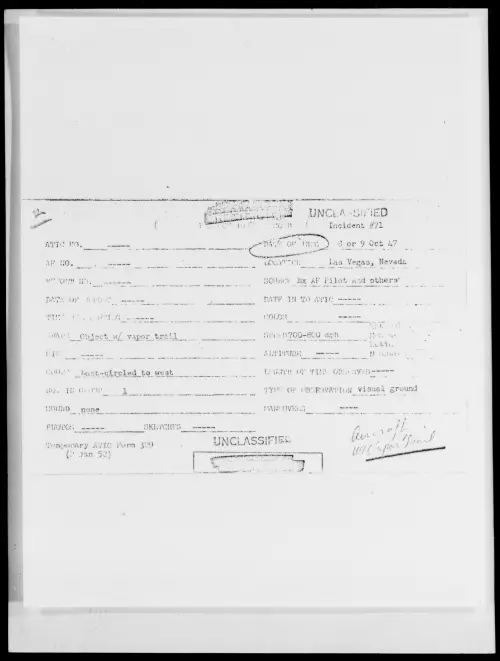 2
UNCLASSIFIED
Incident #71
ATIC NO. -----
DATE OF INFO. 8 or 9 Oct 47
AF NO. -----
LOCATION Las Vegas, Nevada
REPORT NO. -----
SOURCE Ex AF Pilot and others
DATE OF REPORT -----
DATE IN TO ATIC -----
-----
COLOR -----
SHAPE Object w/ vapor trail
SPEED 700-800 mph
SIZE -----
ALTITUDE -----
COURSE East-circled to west
LENGTH OF TIME OBSERVED -----
NO. IN GROUP 1
TYPE OF OBSERVATION visual ground
SOUND none
MANEUVERS -----
PHOTOS ----- SKETCHES -----
Temporary ATIC Form 329
(2 Jan 52)
UNCLASSIFIED
Aircraft
w/Vapor Trail